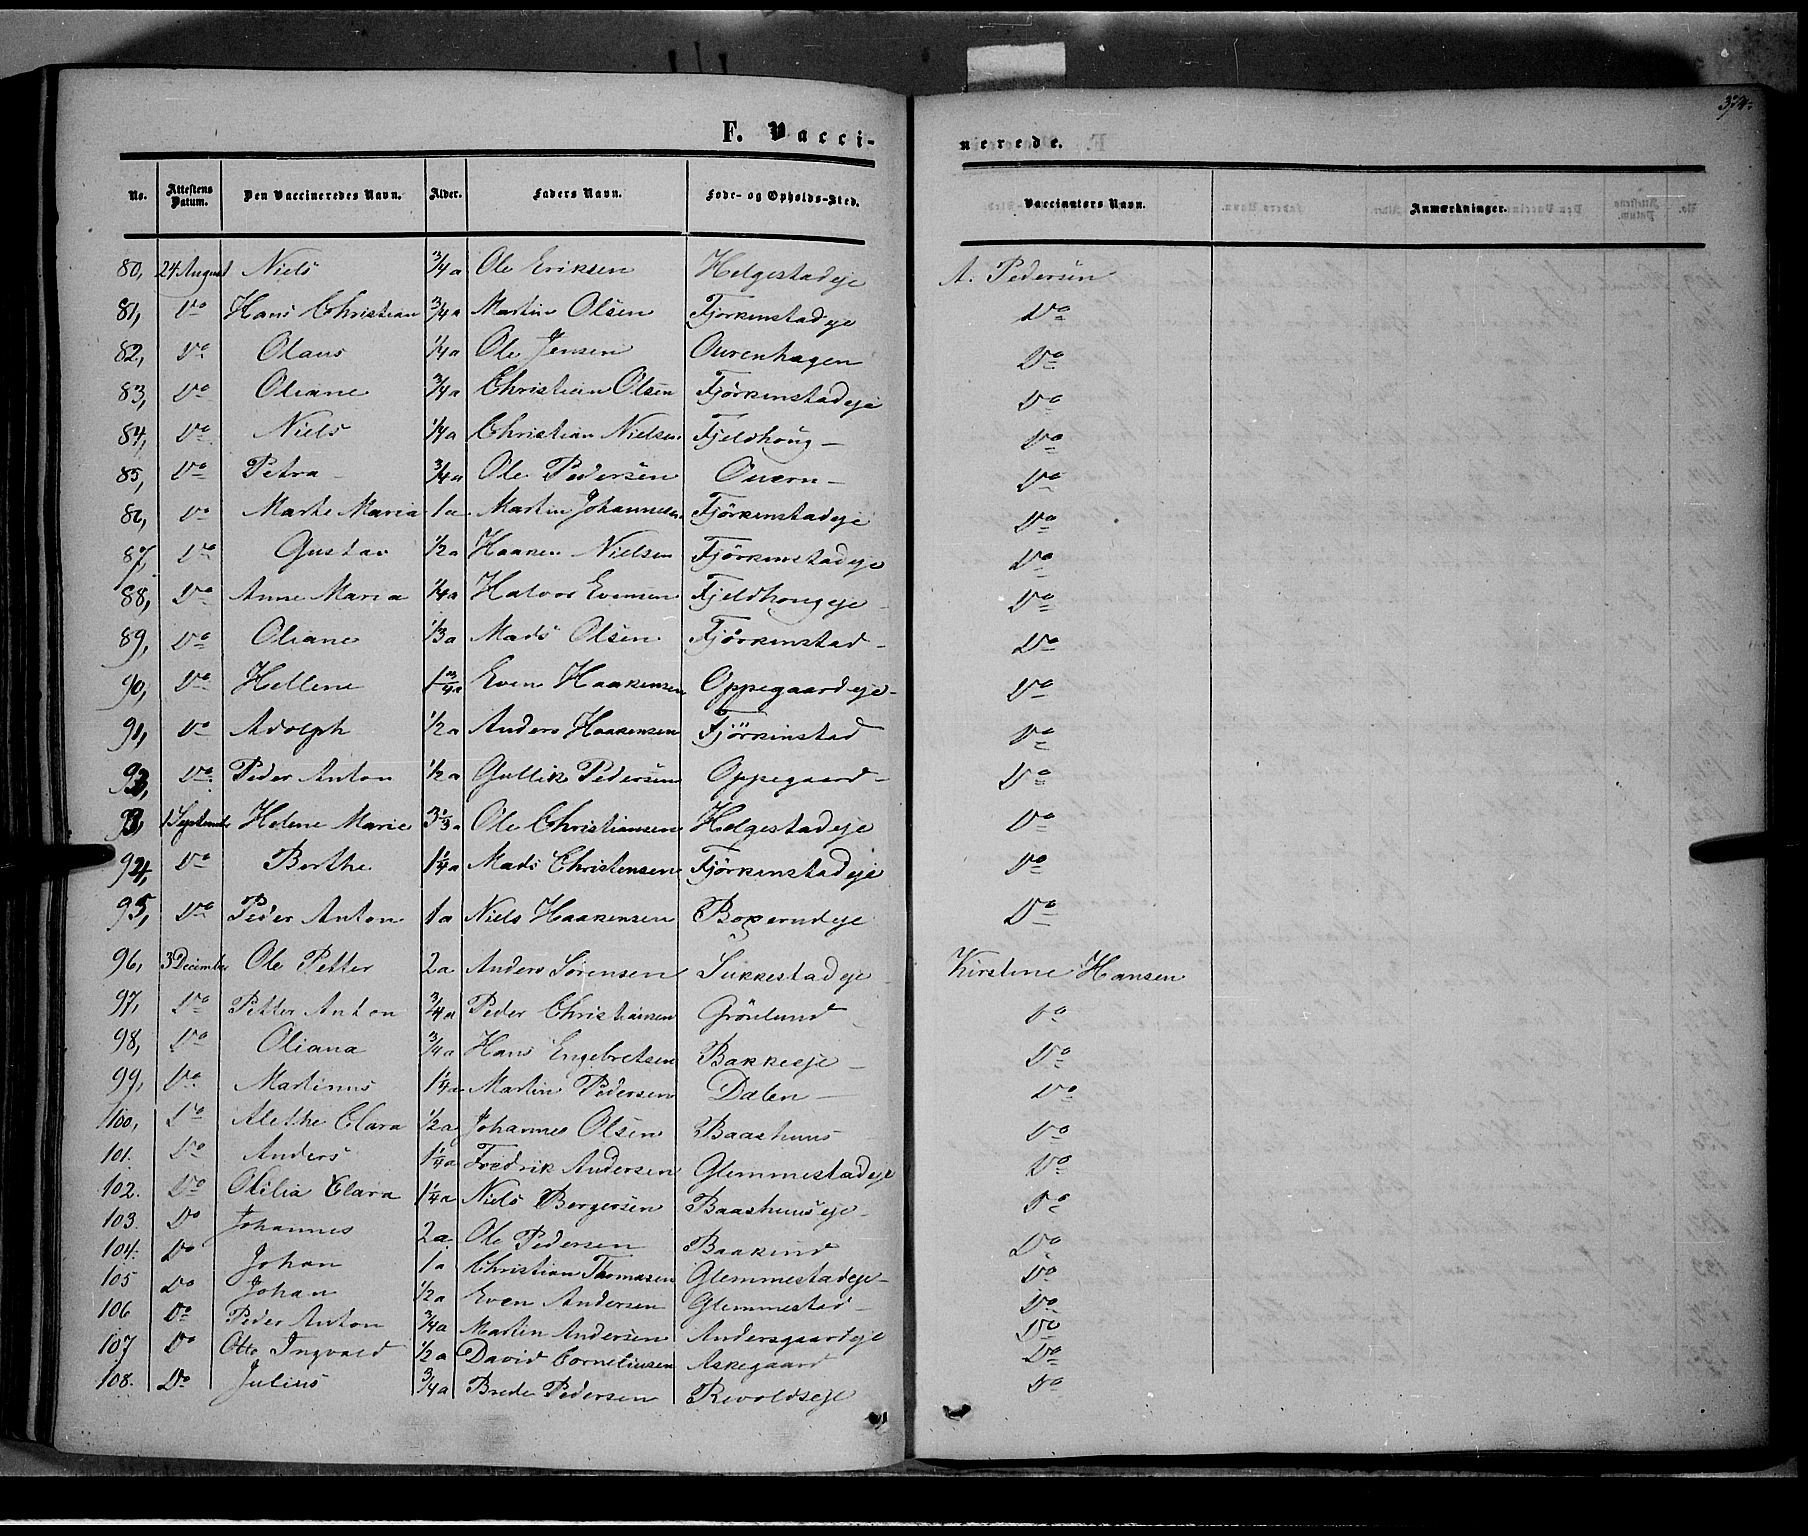 374.
F. Vacci-
nerede.
No. Attestens Datum. Den Vaccineredes Navn. Alder. Faders Navn. Føde- og Opholds-Sted. Vaccinators Navn. Anmærkninger.
80, 24 August Niels 3/4 a Ole Eriksen Helgestadeje A. Pedersen
81, Do Hans Christian 3/4 a Martin Olsen Fjørkenstadeje Do
82, Do Olaus 1/4 a Ole Jensen Ourenhagen Do
83, Do Oliane 3/4 a Christian Olsen Fjørkenstadeje Do
84, Do Niels 1/4 a Christian Nielsen Fjeldhoug Do
85, Do Petra 3/4 a Ole Pedersen Ouern Do
86, Do Marthe Maria 1 a Martin Johannesen Fjörkenstadeje Do
87, Do Gustav 1/2 a Haaken Nielsen Fjörkenstadeje Do
88, Do Anne Maria 1/4 a Halvor Evensen Fjeldhougeje Do
89, Do Oliane 1/3 a Mads Olsen Fjörkenstad Do
90, Do Hellene 1 3/4 a Even Haakensen Oppegaardeje Do
91, Do Adolph 1/2 a Anders Haakensen Fjörkinstad Do
93, Do Peder Anton 1/2 a Gullik Pedersen Oppegaard Do
93, 1 September Helene Marie 3 1/3 a Ole Christiansen Helgestadeje Do
94, Do Berthe 1 1/4 a Mads Christensen Fjørkenstadeje Do
95, Do Peder Anton 1 a Niels Haakensen Boxerudeje Do
96, 3 December Ole Petter 2 a Anders Sørensen Sukkestadeje Kirstine Hansen
97, Do Petter Anton 3/4 a Peder Christiansen Grönlund Do
98, Do Oliana 3/4 a Hans Engebretsen Bakkeeje Do
99, Do Martinus 1 1/4 a Martin Pedersen Dælen Do
100, Do Alethe Clara 1/2 a Johannes Olsen Baashuus Do
101. Do Anders 1 1/4 a Fredrik Andersen Glemmestadeje Do
102. Do Otilia Clara 1 1/4 a Niels Borgersen Baashuuseje Do
103. Do Johannes 2 a Ole Pedersen Baakind Do
104. Do Johan 1 a Christian Thomasen Glemmestadeje Do
105 Do Johan 1/2 a Even Andersen Glemmestad Do
106 Do Peder Anton 3/4 a Martin Andersen Andersgaardeje Do
107 Do Otto Ingvald 1/2 a David Corneliusen Askegaard Do
108. Do Julius 3/4 a Brede Pedersen Revoldseje Do